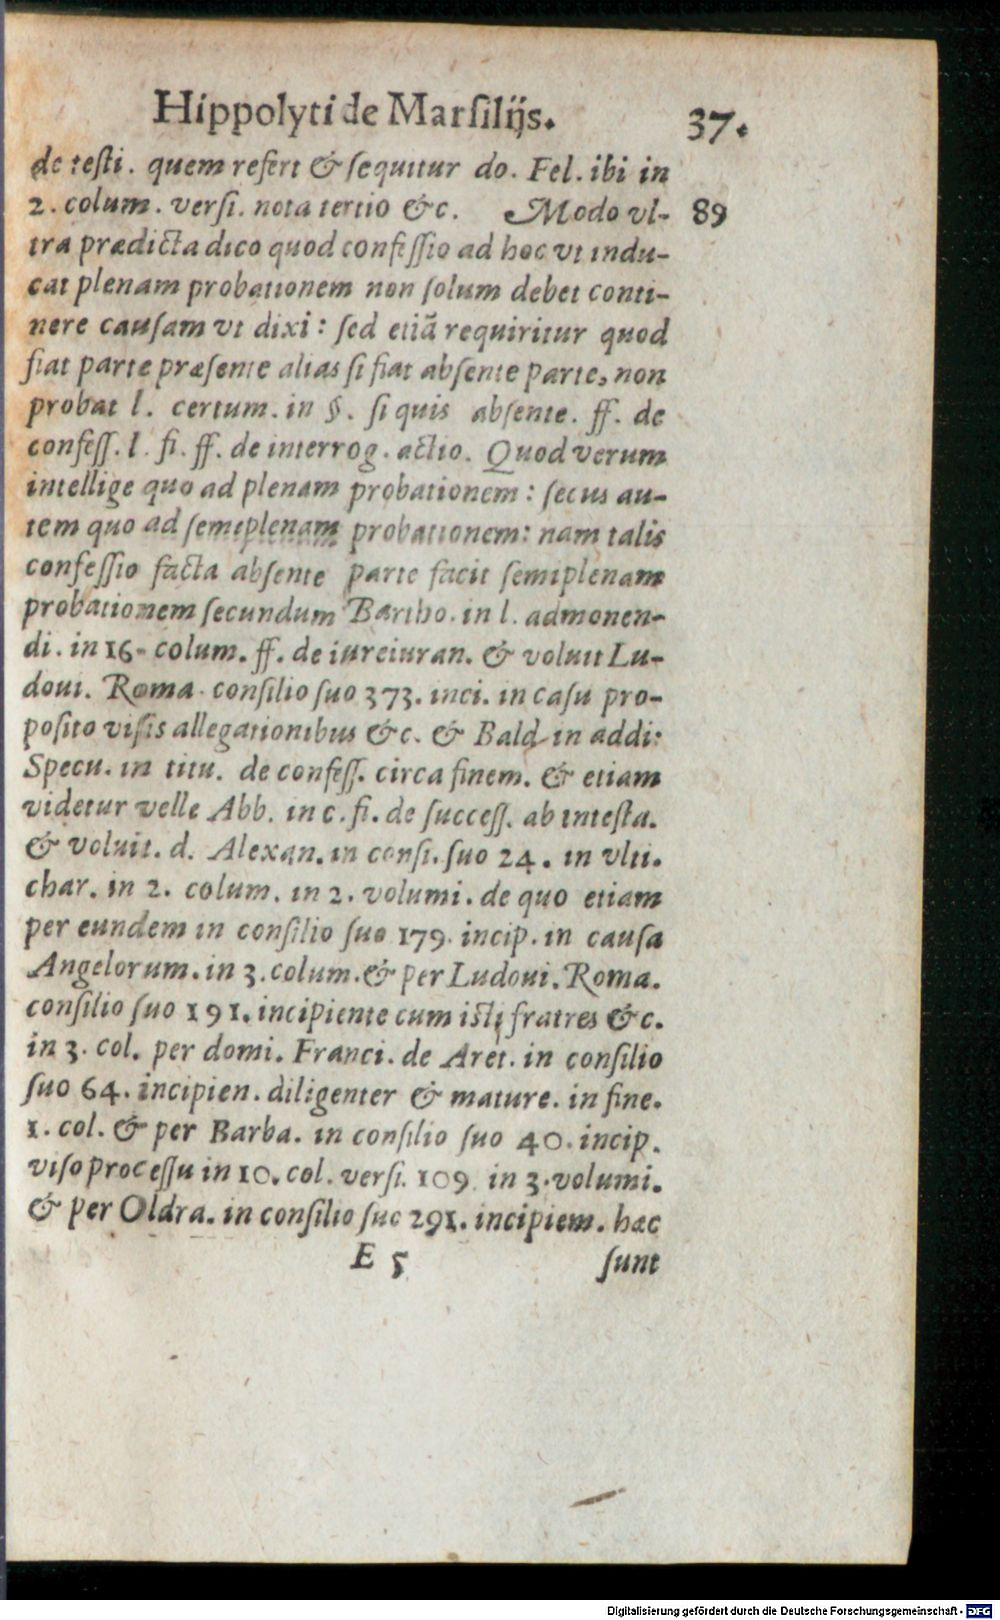 Hippolyti de Marſilijs. 37.
de teſti. quem refert & ſequitur do. Fel. ibi in
2. colum. verſi. nota tertio &c. Modo vl- 89
tra prædicta dico quod confeſſio ad hoc vt indu-
cat plenam probationem non ſolum debet conti-
nere cauſam vt dixi: ſed etiã requiritur quod
fiat parte præſente alias ſi fiat abſente parte, non
probat l. certum. in §. ſi quis abſente. ff. de
confeſſ. l. fi. ff. de interrog. actio. Quod verum
intellige quo ad plenam probationem: ſecus au-
tem quo ad ſemiplenam probationem: nam talis
confeſſio facta abſente parte facit ſemiplenam
probationem ſecundum Bartho. in l. admonen-
di. in 16. colum. ff. de iureiuran. & voluit Lu-
doui. Roma. conſilio ſuo 373. inci. in caſu pro-
poſito viſis allegationibus &c. & Bald in addi:
Specu. in titu. de confeſſ. circa finem. & etiam
videtur velle Abb. in c. fi. de ſucceſſ. ab inteſta.
& voluit. d. Alexan. in conſi. ſuo 24. in vlti.
char. in 2. colum. in 2. volumi. de quo etiam
per eundem in conſilio ſuo 179. incip. in cauſa
Angelorum. in 3. colum. & per Ludoui. Roma.
conſilio ſuo 191. incipiente cum iſti fratres &c.
in 3. col. per domi. Franci. de Aret. in conſilio
ſuo 64. incipien. diligenter & mature. in fine.
1. col. & per Barba. in conſilio ſuo 40. incip.
viſo proceſſu in 10. col. verſi. 109. in 3. volumi.
& per Oldra. in conſilio ſuo 291. incipiem. hæc
E 5 ſunt
Digitalisierung gefördert durch die Deutsche Forschungsgemeinschaft - DFG